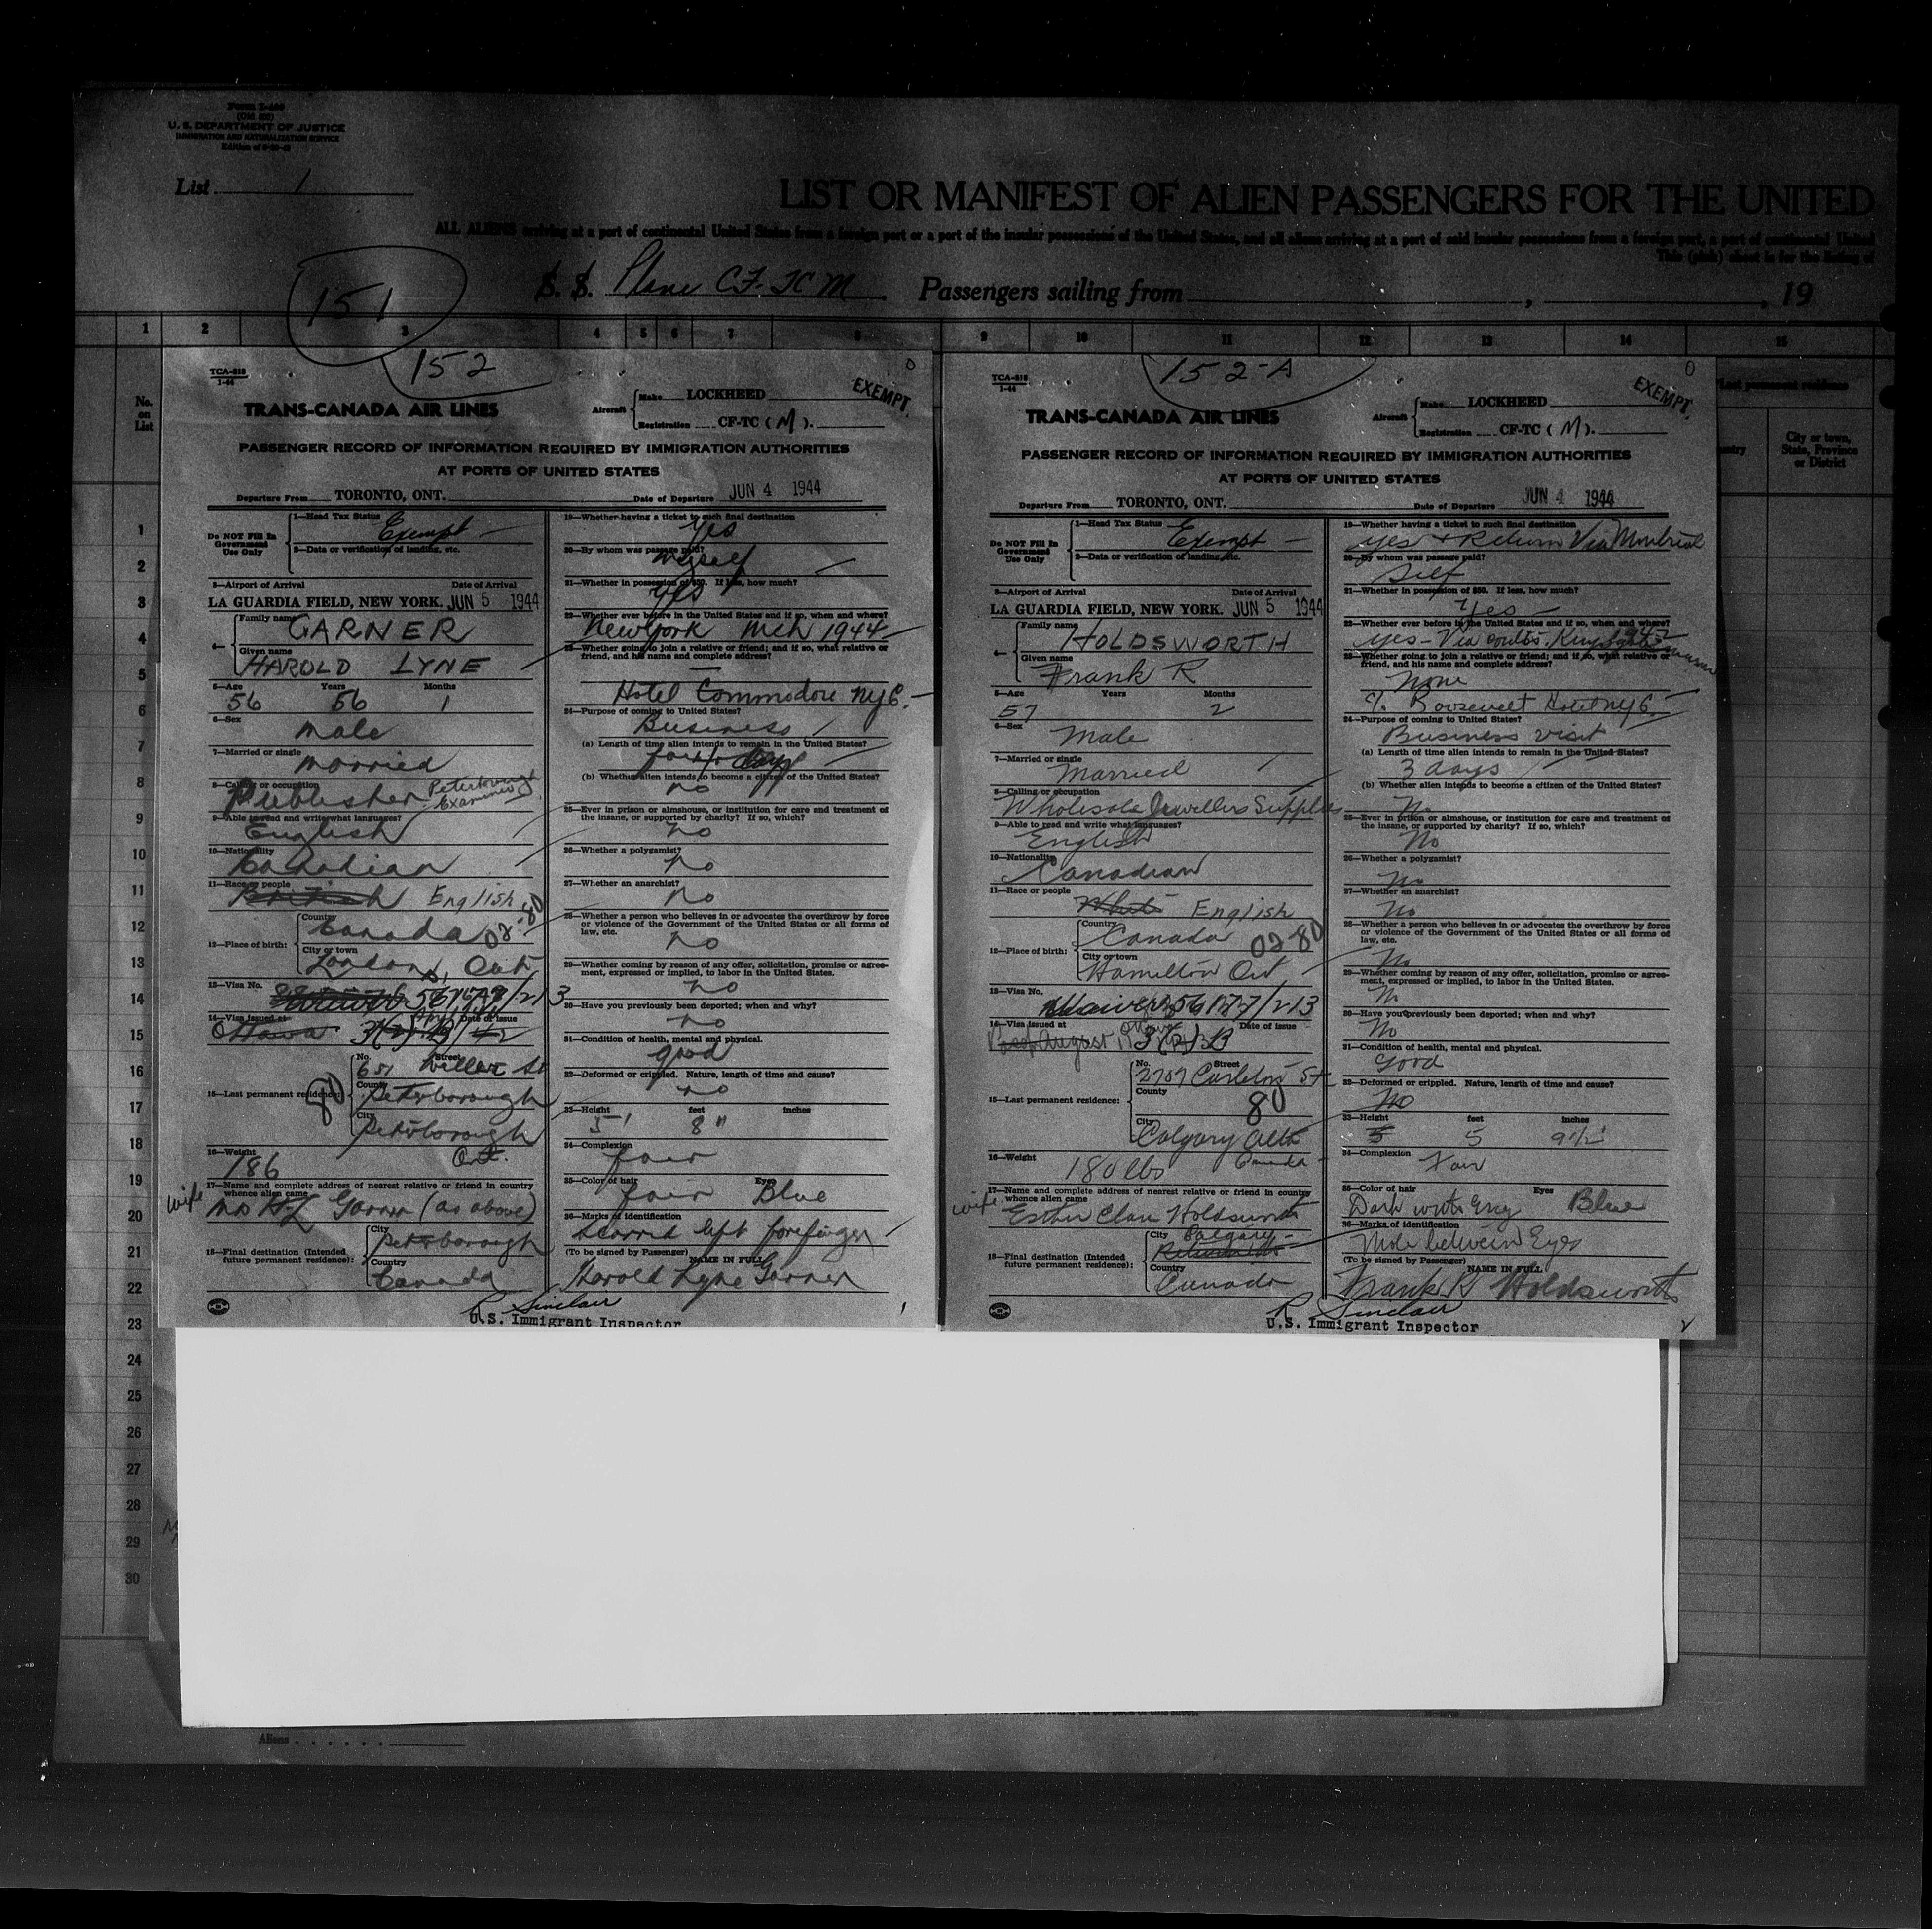 Form I-400
(Old 500)
U. S. DEPARTMENT OF JUSTICE
IMMIGRATION AND NATURALIZATION SERVICE
List 1
LIST OR MANIFEST OF ALIEN PASSENGERS FOR THE UNITED
ALL ALIENS arriving at a port of continental United States from a foreign port or a port of the insular possessions of the United States, and all aliens arriving at a port of said insular possessions from a foreign port, a port of continental United
This (pink) sheet is for the listing of
151
S. S. Plane CF-TCM Passengers sailing from , , 19
1 2 3 4 5 6 7 8 9 10 11 12 13 14 15
No. on List
152
TCA-818
1-44
TRANS-CANADA AIR LINES
Aircraft Make LOCKHEED
Registration CF-TC (M).
EXEMPT.
PASSENGER RECORD OF INFORMATION REQUIRED BY IMMIGRATION AUTHORITIES
AT PORTS OF UNITED STATES
Departure From TORONTO, ONT. Date of Departure JUN 4 1944
Do NOT Fill In Government Use Only
1—Head Tax Status Exempt —
2—Data or verification of landing, etc.
3—Airport of Arrival Date of Arrival
LA GUARDIA FIELD, NEW YORK. JUN 5 1944
4— Family name GARNER
Given name HAROLD LYNE
5—Age Years Months
56 56 1
6—Sex
male
7—Married or single
married
8—Calling or occupation
Publisher Peterborough Examiner
9—Able to read and write what languages?
English
10—Nationality
Canadian
11—Race or people
British English
12—Place of birth: Country Canada 02-80
City or town London, Ont
13—Visa No.
14—Visa issued at Date of Issue
Ottawa 3(2)
15—Last permanent residence: No. Street
80
County Peterborough
City Peterborough
Ont.
16—Weight
186
17—Name and complete address of nearest relative or friend in country whence alien came
wife Mrs H L Garner (as above)
18—Final destination (Intended future permanent residence): City Peterborough
Country Canada
19—Whether having a ticket to such final destination
Yes
20—By whom was passage paid?
Myself
21—Whether in possession of $50. If less, how much?
yes
22—Whether ever before in the United States and if so, when and where?
New York Mch 1944
23—Whether going to join a relative or friend; and if so, what relative or friend, and his name and complete address?
Hotel Commodore NYC.
24—Purpose of coming to United States?
Business
(a) Length of time alien intends to remain in the United States?
(b) Whether alien intends to become a citizen of the United States?
no
25—Ever in prison or almshouse, or institution for care and treatment of the insane, or supported by charity? If so, which?
no
26—Whether a polygamist?
no
27—Whether an anarchist?
no
28—Whether a person who believes in or advocates the overthrow by force or violence of the Government of the United States or all forms of law, etc.
no
29—Whether coming by reason of any offer, solicitation, promise or agreement, expressed or implied, to labor in the United States.
no
30—Have you previously been deported; when and why?
no
31—Condition of health, mental and physical.
good
32—Deformed or crippled. Nature, length of time and cause?
no
33—Height feet inches
5' 8"
34—Complexion
fair
35—Color of hair Eyes
fair Blue
36—Marks of identification
Scarred left forefinger
(To be signed by Passenger) NAME IN FULL
Harold Lyne Garner
R Sinclair
U.S. Immigrant Inspector
1
152-A
TCA-818
1-44
TRANS-CANADA AIR LINES
Aircraft Make LOCKHEED
Registration CF-TC (M).
EXEMPT.
PASSENGER RECORD OF INFORMATION REQUIRED BY IMMIGRATION AUTHORITIES
AT PORTS OF UNITED STATES
Departure From TORONTO, ONT. Date of Departure JUN 4 1944
Do NOT Fill In Government Use Only
1—Head Tax Status Exempt —
2—Data or verification of landing, etc.
3—Airport of Arrival Date of Arrival
LA GUARDIA FIELD, NEW YORK. JUN 5 1944
4— Family name HOLDSWORTH
Given name Frank R
5—Age Years Months
57 2
6—Sex
Male
7—Married or single
Married
8—Calling or occupation
Wholesale Jewellers Supplies
9—Able to read and write what languages?
English
10—Nationality
Canadian
11—Race or people
White English
12—Place of birth: Country Canada 02-80
City or town Hamilton Ont
13—Visa No.
14—Visa issued at Date of issue
15—Last permanent residence: No. Street
2707 Carleton St
County 80
City Calgary Alta
Canada
16—Weight
180 lbs
17—Name and complete address of nearest relative or friend in country whence alien came
wife Esther Clare Holdsworth
18—Final destination (Intended future permanent residence): City Calgary
Country Canada
19—Whether having a ticket to such final destination
yes + Return Via Montreal
20—By whom was passage paid?
Self
21—Whether in possession of $50. If less, how much?
Yes —
22—Whether ever before in the United States and if so, when and where?
23—Whether going to join a relative or friend; and if so, what relative or friend, and his name and complete address?
None
% Roosevelt Hotel NYC
24—Purpose of coming to United States?
Business visit
(a) Length of time alien intends to remain in the United States?
3 days
(b) Whether alien intends to become a citizen of the United States?
No
25—Ever in prison or almshouse, or institution for care and treatment of the insane, or supported by charity? If so, which?
No
26—Whether a polygamist?
No
27—Whether an anarchist?
No
28—Whether a person who believes in or advocates the overthrow by force or violence of the Government of the United States or all forms of law, etc.
No
29—Whether coming by reason of any offer, solicitation, promise or agreement, expressed or implied, to labor in the United States.
No
30—Have you previously been deported; when and why?
No
31—Condition of health, mental and physical.
Good
32—Deformed or crippled. Nature, length of time and cause?
No
33—Height feet inches
5 5 9 1/2
34—Complexion
Fair
35—Color of hair Eyes
Dark with Grey Blue
36—Marks of identification
Mole between Eyes
(To be signed by Passenger) NAME IN FULL
Frank R Holdsworth
R Sinclair
U.S. Immigrant Inspector
2
Last permanent residence
City or town, State, Province or District
1
2
3
4
5
6
7
8
9
10
11
12
13
14
15
16
17
18
19
20
21
22
23
24
25
26
27
28
29
30
Aliens